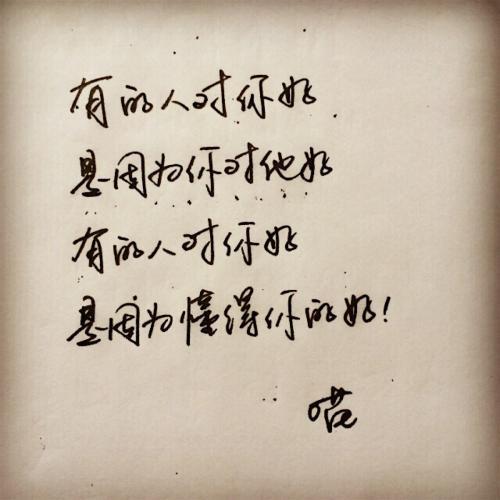 有的人对你好
是因为你对他好
有的人对你好
是因为懂得你的好！
喏